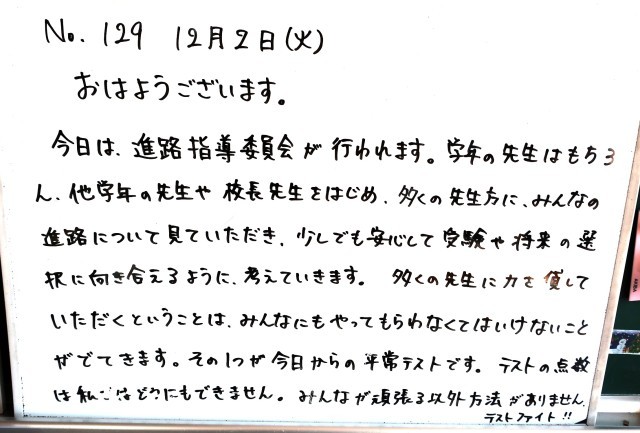 No. 129 12月2日(火)
おはようございます。
今日は、進路指導委員会が行われます。学年の先生はもちろ
ん、他学年の先生や校長先生をはじめ、多くの先生方に、みんなの
進路について見ていただき、少しでも安心して受験や将来の選
択に向き合えるように、考えていきます。 多くの先生に力を貸して
いただくということは、みんなにもやってもらわなくてはいけないこと
がでてきます。その1つが今日からの平常テストです。テストの点数
は私ではどうにもできません。みんなが頑張る以外方法がありません。
テストファイト!!